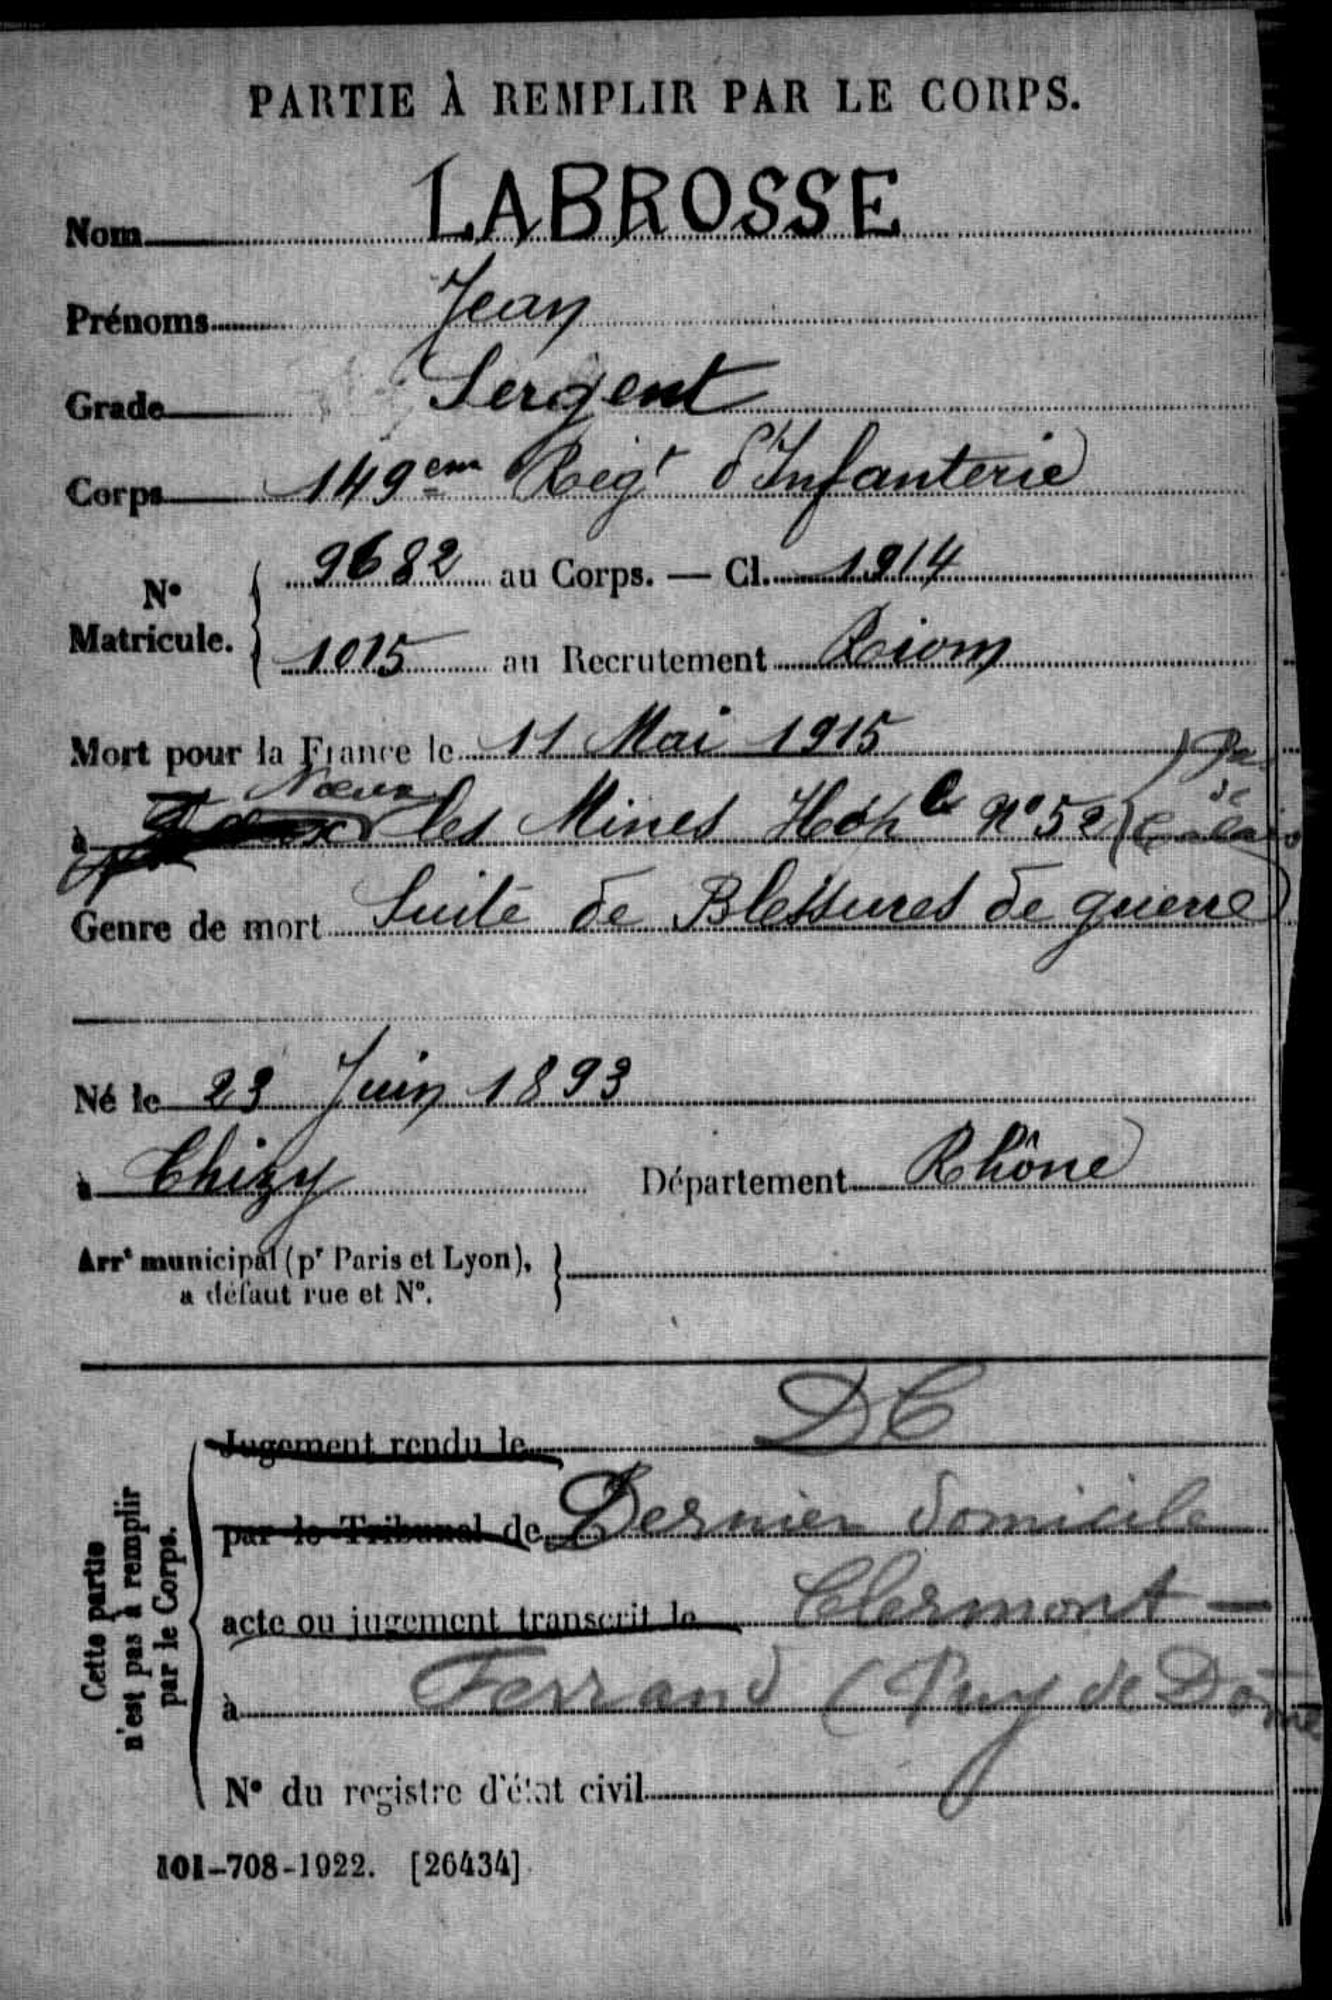 PARTIE À REMPLIR PAR LE CORPS.
Nom LABROSSE
Prénoms Jean
Grade Sergent
Corps 149em Regt d'Infanterie
N° Matricule. 9682 au Corps. — Cl. 1914
1015 au Recrutement Riom
Mort pour la France le 11 Mai 1915
à Nœux les Mines Hôple N°52 (Pas de Calais)
Genre de mort Suite de Blessures de guerre
Né le 23 Juin 1893
à Thizy Département Rhône
Arrt municipal (pr Paris et Lyon),
a défaut rue et N°.
Cette partie
n'est pas à remplir
par le Corps.
Jugement rendu le DC
par le Tribunal de Dernier domicile
acte ou jugement transcrit le Clermont-
à Ferrand (Puy de Dôme
N° du registre d'état civil
101-708-1922. [26434]